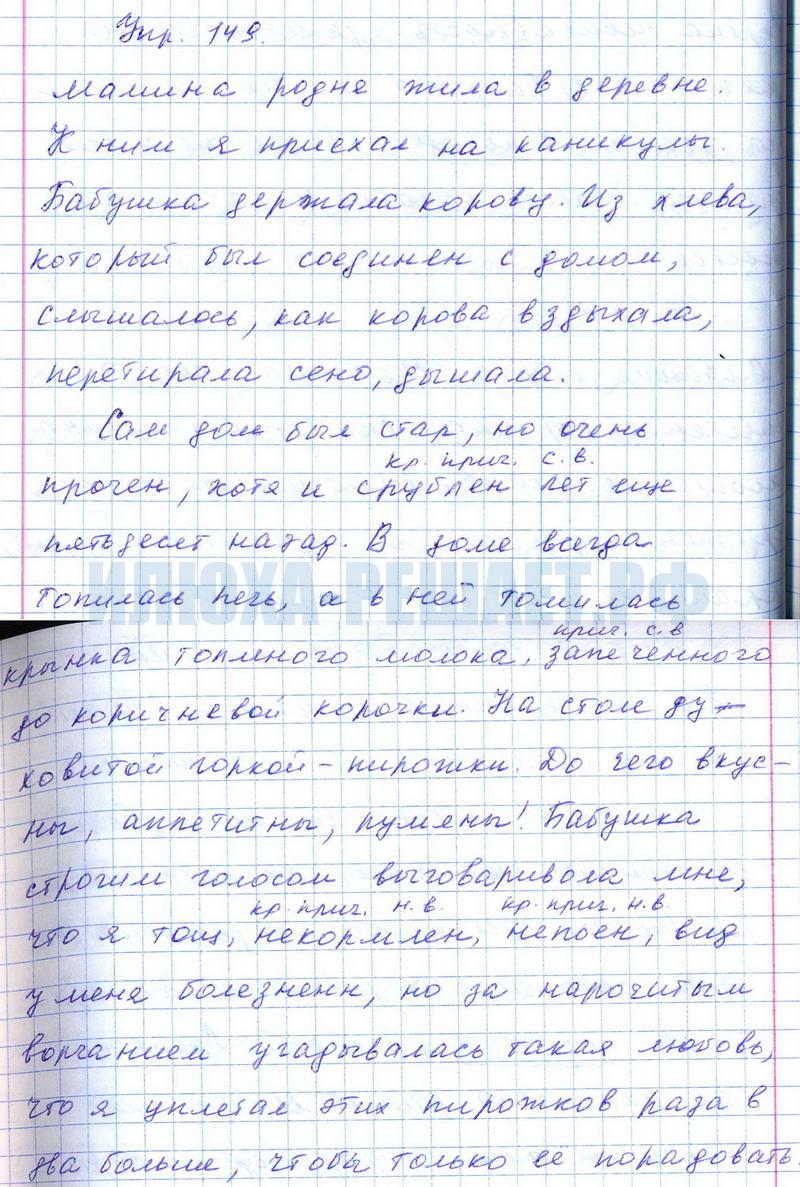 Упр. 149.
Мамина родня жила в деревне.
К ним я приехал на каникулы.
Бабушка держала корову. Из хлева,
который был соединен с домом,
слышалось, как корова вздыхала,
перетирала сено, дышала.
Сам дом был стар, но очень
кр. прич. с.в.
прочен, хотя и срублен лет еще
пятьдесят назад. В доме всегда
ИЛЮХА-РЕШАЕТ.РФ
топилась печь, а в ней томилась
прич. с.в
крынка топленого молока, запеченного
до коричневой корочки. На столе ду-
ховитой горкой - пирожки. До чего вкус-
ны, аппетитны, румяны! Бабушка
строгим голосом выговаривала мне,
кр. прич. н.в. кр. прич. н.в.
что я тощ, некормлен, непоен, вид
у меня болезненн, но за нарочитым
ворчанием угадывалась такая любовь,
что я уплетал этих пирожков раза в
два больше, чтобы только её порадовать.